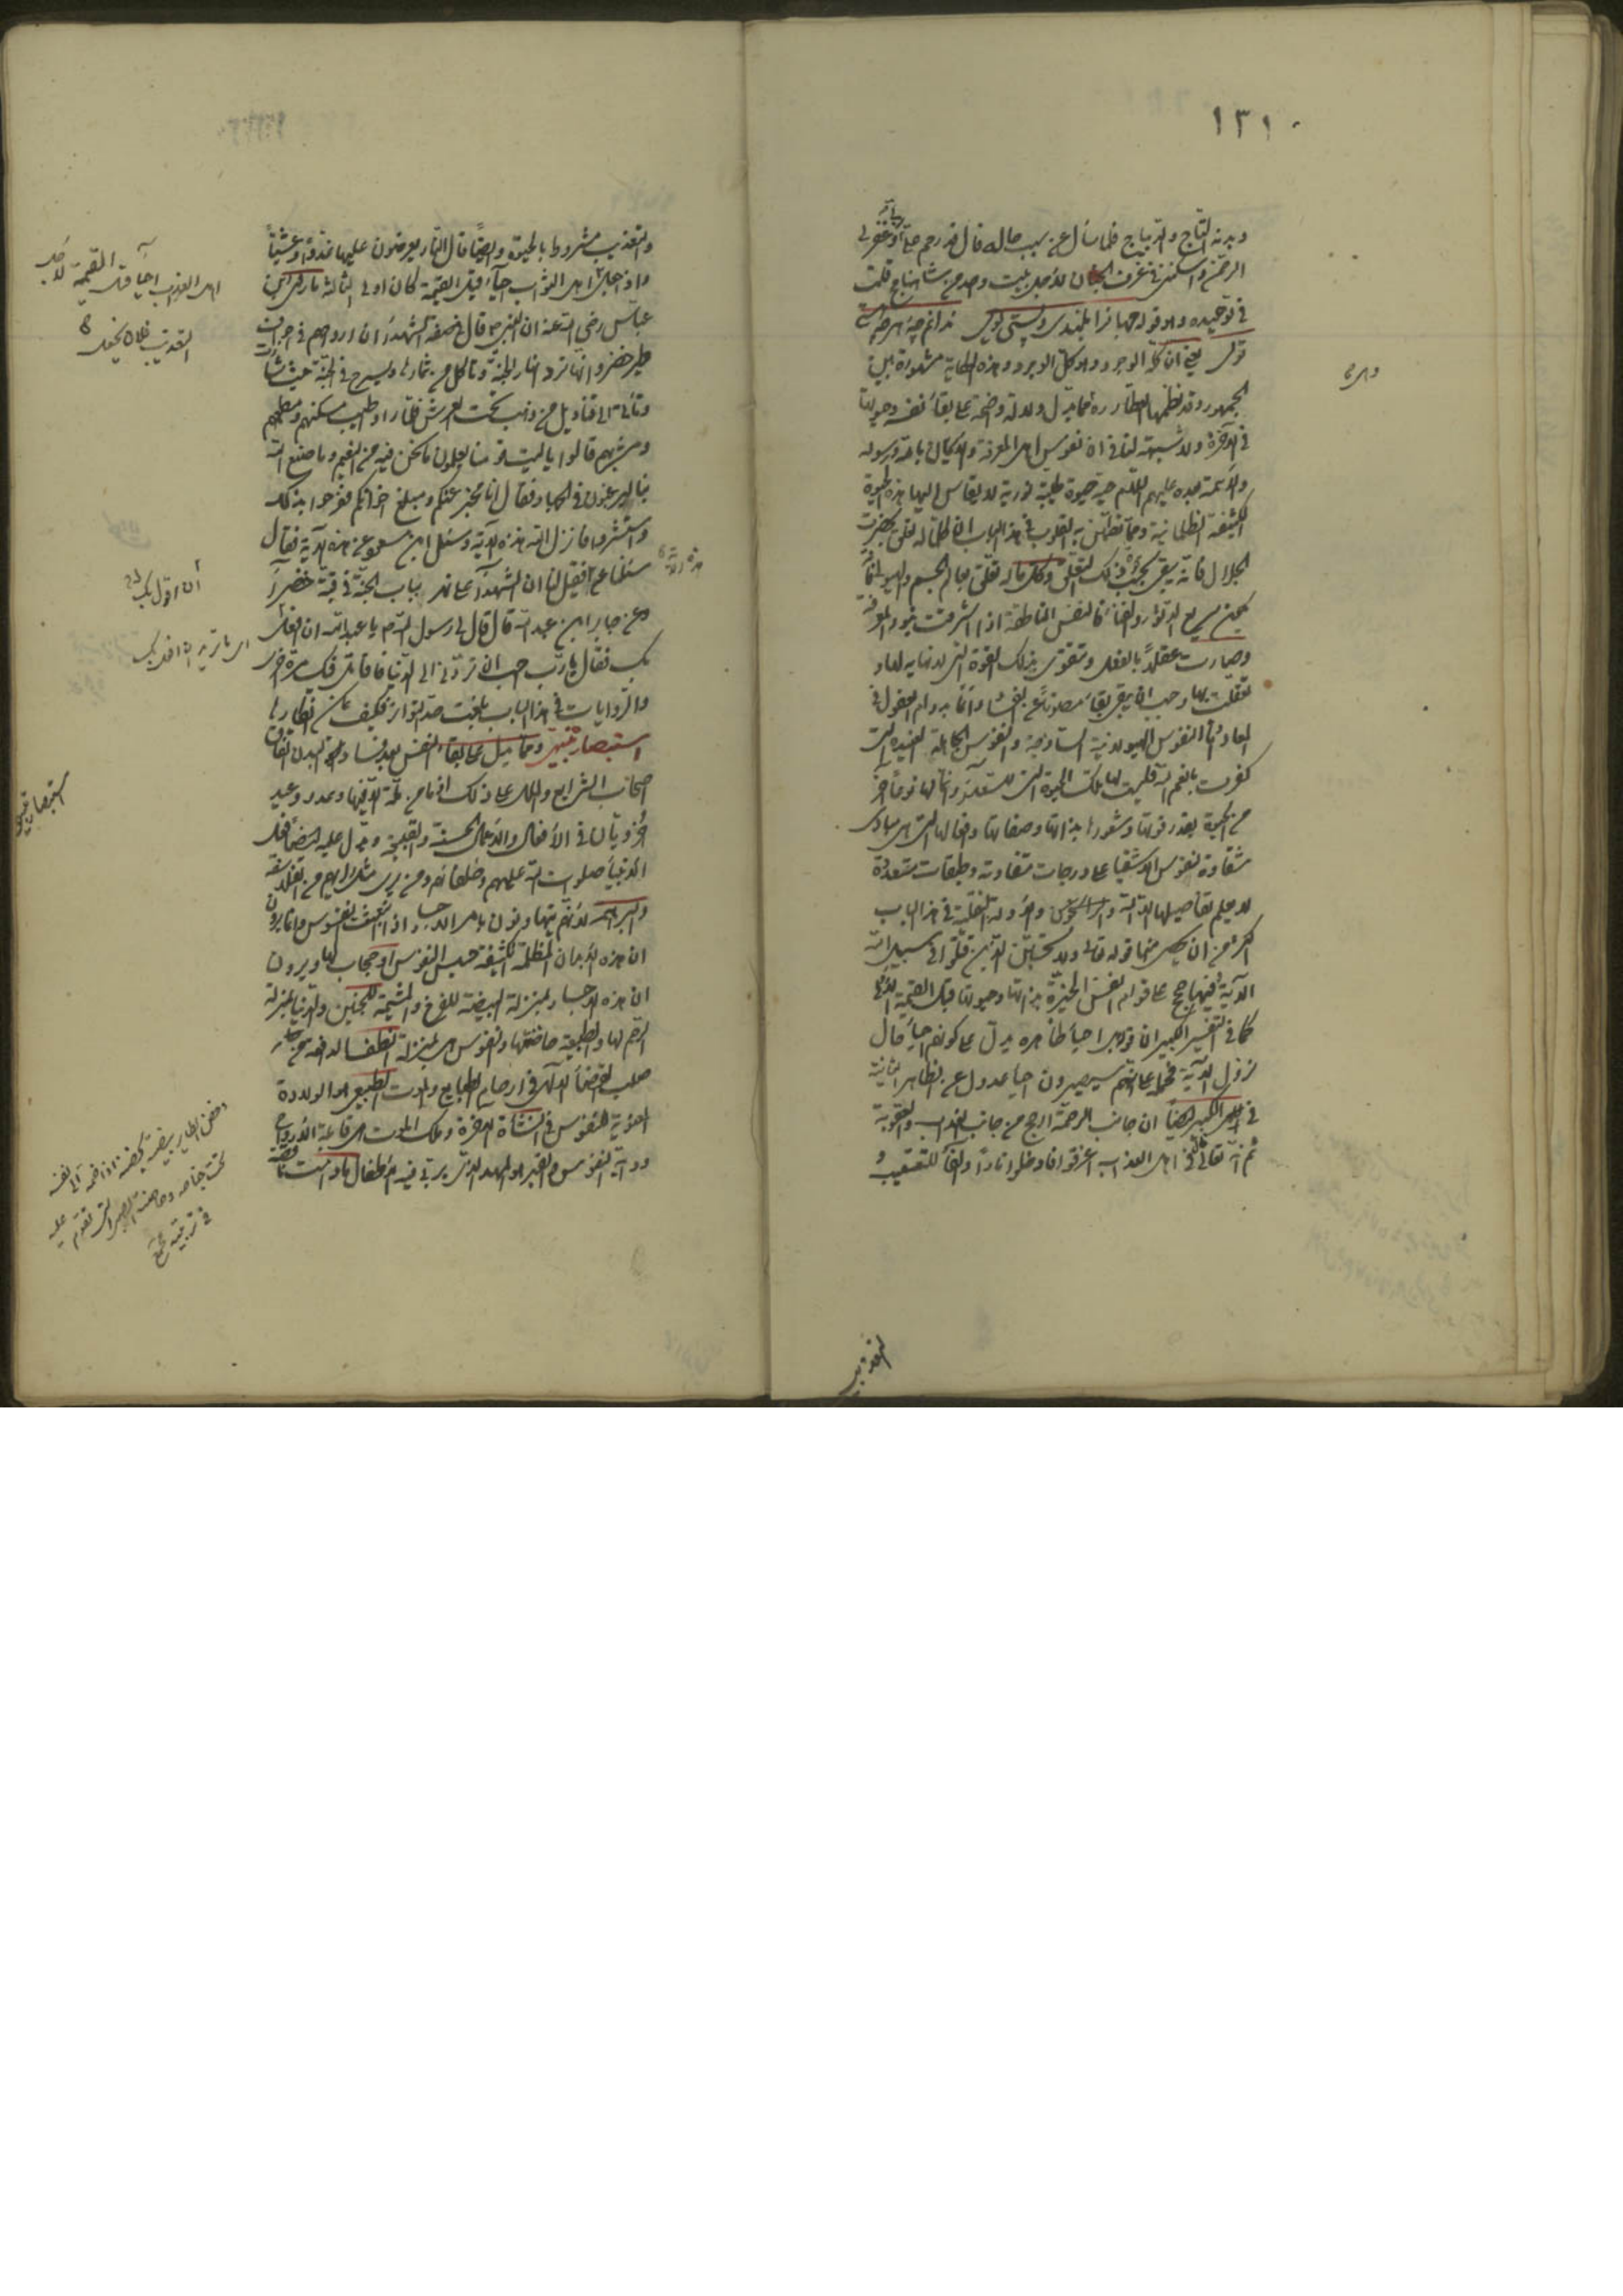 ١٣١٠
وبيده التاج والديباج فلما سأل عن سبب حاله قال قد رحم علي وغفر لي
الرحمن واسكنني في غرف الجنان لاجل بيت وحدمي شاهنامج قلت
في توحيده وهو قوله جهانرا بلندي وپستي توئي ندانم چه هر چه هستي
توئي يعني ان كل الوجود وهو كل الوجود وهذه الحكاية مشهورة بين
الجمهور وقد نظمها العطار ره مما يدل دلالة واضحة على بقاء نفسه وحيوتها
في الآخرة ولا شبهة لنا في ان نفوس اهل المعرفة والايمان بالله ورسوله
والائمة بعده عليهم السلام حية حيوة طيبة نورية لا يقاس اليها هذه الحيوة
الكثيفة الظلمانية ومما تطمئن به القلوب في هذا الباب ان ما له تعلق بحضرت
الجلال فانه يبقى بحسب ذلك التعلق وكل ما له تعلق بعالم الجسم والهيولى فانه
يكون سريع الدثور والفناء فالنفس الناطقة اذا اشرقت بنور المعرفة
وصارت عقلا بالفعل وتقوى بذلك القوة التي لا نهاية لها و
تعقلت بها وجب ان يبقى بقاء مصونا عن الفساد دائما بدوام العقول في
المعاد واما النفوس الهيولانية الساذجة والنفوس الجاهلة العنيدة التي
كفرت بانعم الله فليست لها تلك الحيوة التي للسعداء وانما لها نوعا آخر
من الحيوة بقدر قوتها وشعورها بذاتها وصفاتها وفعالها التي هي مبادي
شقاوة نفوس الاشقياء على درجات متفاوتة وطبقات متعددة
لا يعلم تفاصيلها الا الله والراسخون والادلة النقلية في هذا الباب
اكثر من ان يحصى منها قوله تعالى ولا تحسبن الذين قتلوا في سبيل الله
الآية ففيها حجج على قوام النفس الخيرة بذاتها وحيوتها قبل القيمة
كما في التفسير الكبير ان قوله بل احياء ظاهره يدل على كونهم احياء حال
نزول الآية فحمله على انهم سيصيرون احياء عدول عن الظاهر الثانية
في التفسير الكبير ايضا ان جانب الرحمة ارجح من جانب العذاب والعقوبة
ثم انه تعالى قال في اهل العذاب اغرقوا فادخلوا نارا والفاء للتعقيب و
التعذيب
والتعذيب مشروط بالحيوة وايضا قال النار يعرضون عليها غدوا وعشيا
واذ جعل اهل الثواب احياء قبل القيمة كان اولى الثالثة ما روى ابن
عباس رضي الله عنه ان النبي ص قال في صفة الشهداء ان ارواحهم في اجواف
طير خضر وانها ترد انهار الجنة وتاكل من ثمارها وتسرح في الجنة حيث شاءت
وتأتي الى قناديل من ذهب تحت العرش فلما رأوا طيب مسكنهم ومطعمهم
ومشربهم قالوا يا ليت قومنا يعلمون ما نحن فيه من النعيم وما صنع الله
بنا ليرغبوا في الجهاد فقال انا مخبر عنكم ومبلغ اخوانكم ففرحوا بذلك
واستبشروا فانزل الله هذه الآية وسئل ابن مسعود عن هذه الآية فقال
سئلنا عنها فقيل لنا ان الشهداء على نهر بباب الجنة في قبة خضراء
وعن جابر ابن عبد الله قال قال لي رسول الله ص يا عبد الله ان افعل
بك فقال يا رب احب ان تردني الى الدنيا فاقاتل فيك مرة اخرى
والروايات في هذا الباب بلغت حد التواتر فكيف يمكن انكارها
استبصار تنبيهي ومما يدل على بقاء النفس بعد فساد البدن اتفاق
اصحاب الشرايع والملل على ذلك اذ ما من ملة الا فيها وعد ووعيد
اخرويان في الافعال والاعمال الحسنة والقبيحة ويدل عليه ايضا فعل
الانبياء صلوات الله عليهم وخلفائهم ومن يرى مثل رايهم من الفلاسفة
والبراهمة لانهم يتهاونون بامر الاجساد اذا انبعثت النفوس وانما يرون
ان هذه الابدان المظلمة الكثيفة حبس النفوس او حجاب لها ويرون
ان هذه الاجساد بمنزلة البيضة للفرخ والمشيمة للجنين والدنيا بمنزلة
الرحم لها والطبيعة حاضنتها ونفوس هي بمنزلة النطف الدافعة من
صلب القضاء الالهي في ارحام الطبايع والموت الطبيعي هو الولادة
المعنوية للنفوس في النشاة الاخرة وملك الموت هي قابلة الارواح
وداية النفوس والقبر هو المهد الذي يربى فيه الاطفال
اهل العذاب احياء قبل القيمة لاجل
التعذيب
هذه الآية
استبصار تنبيهي
حضن الطاير بيضه يحضنه اذا ضمه الى نفسه
تحت جناحه وحاضنة الصبي التي تقوم عليه
في تربيته